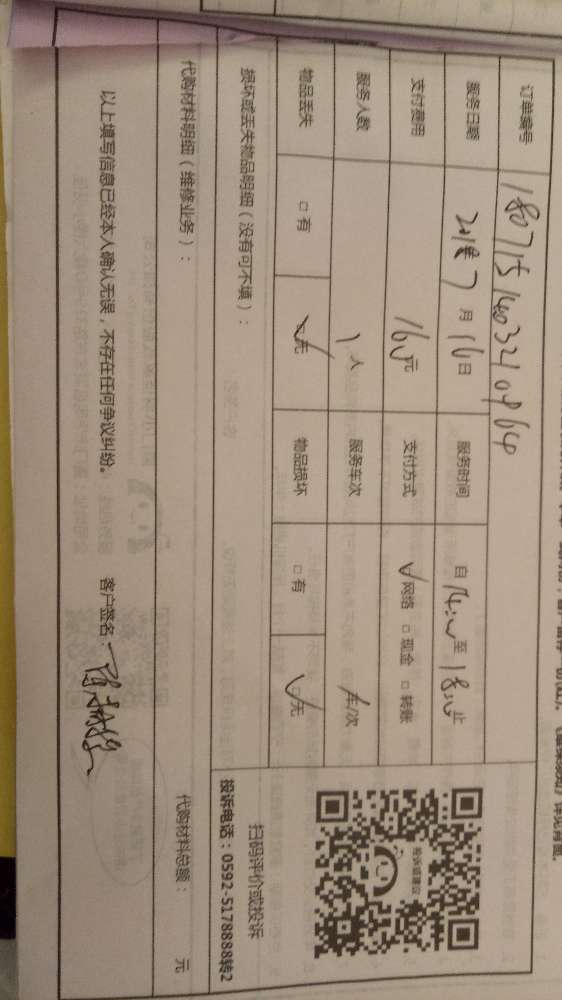 订单编号 1807151403210964
服务日期 2018年7月16日 服务时间 自14:00至18:00止
支付费用 165元 支付方式 ☑网络 □现金 □转账
服务人数 1人 服务车次 车/次
物品丢失 □有 ☑无 物品损坏 □有 ☑无
损坏或丢失物品明细（没有可不填）：
扫码评价或投诉
投诉电话：0592-5178888转2
投诉或建议
代购材料明细（维修业务）：
代购材料总额： 元
以上填写信息已经本人确认无误，不存在任何争议纠纷。 客户签名：